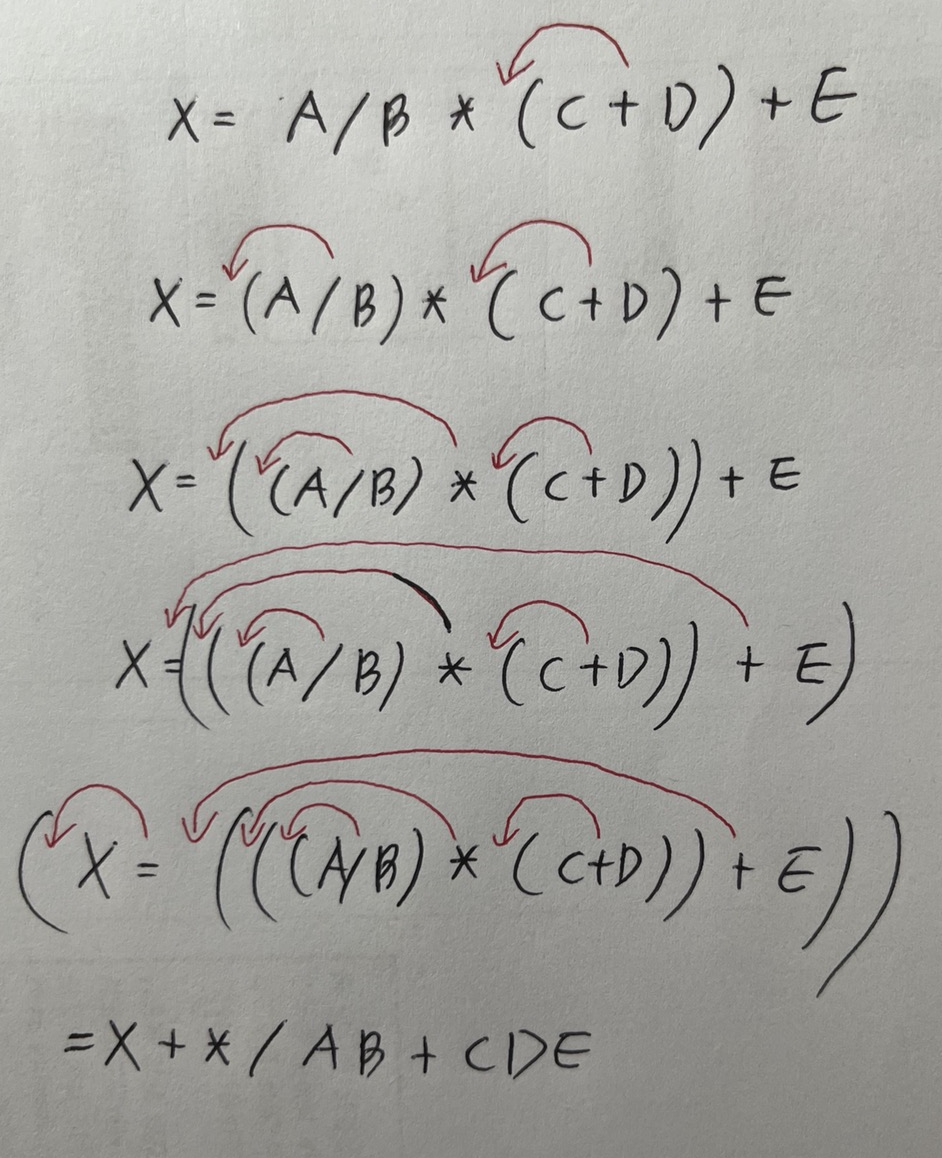 X = A / B * (C + D) + E
X = (A / B) * (C + D) + E
X = ((A / B) * (C + D)) + E
X = (((A / B) * (C + D)) + E)
(X = (((A/B) * (C+D)) + E))
= X + * / A B + C D E